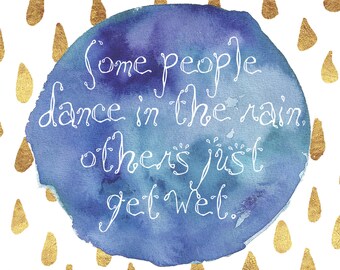 Some people
dance in the rain,
others just
get wet.